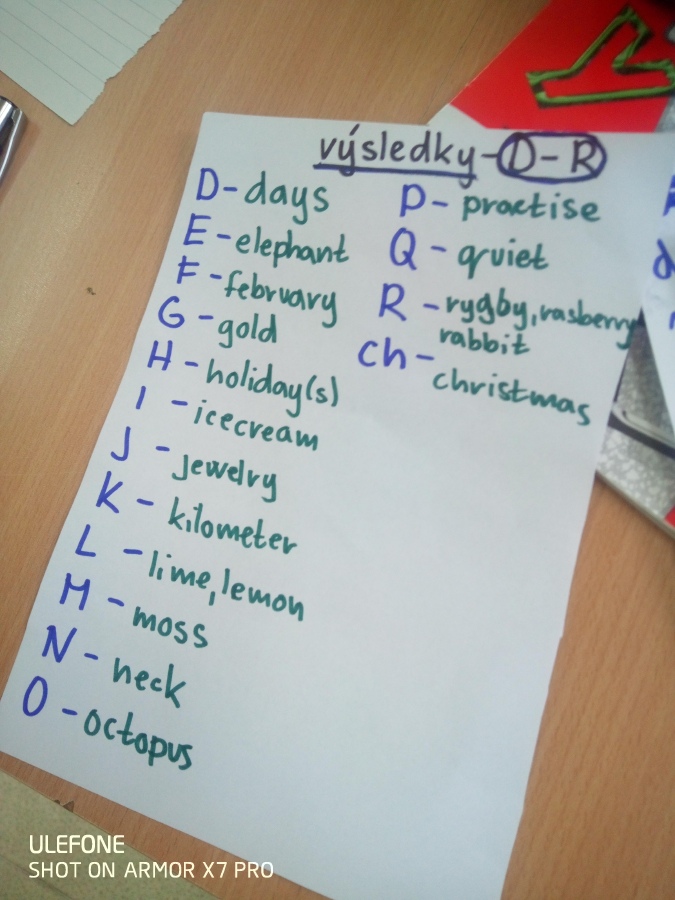 výsledky-D-R
D- days
E - elephant
F - february
G - gold
H - holiday(s)
I - icecream
J - jewelry
K - kilometer
L - lime, lemon
M - moss
N - neck
O - octopus
P - practise
Q - quiet
R - rygby, rasberry
rabbit
Ch -
christmas
ULEFONE
SHOT ON ARMOR X7 PRO